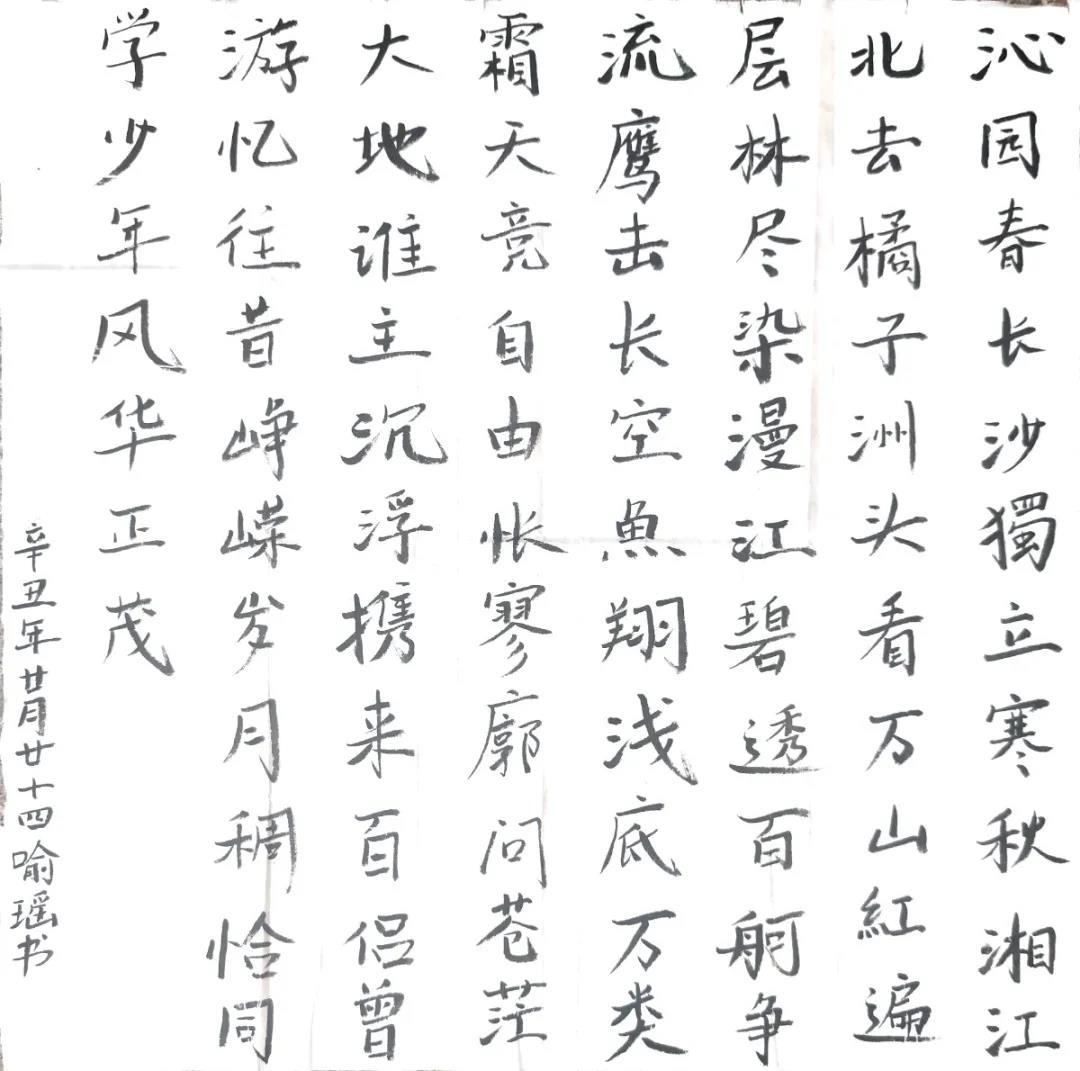 沁园春长沙獨立寒秋湘江
北去橘子洲头看万山紅遍
层林尽染漫江碧透百舸争
流鹰击长空魚翔浅底万类
霜天竞自由怅寥廓问苍茫
大地谁主沉浮携来百侣曾
游忆往昔峥嵘岁月稠恰同
学少年风华正茂
辛丑年廿月廿十四喻瑶书